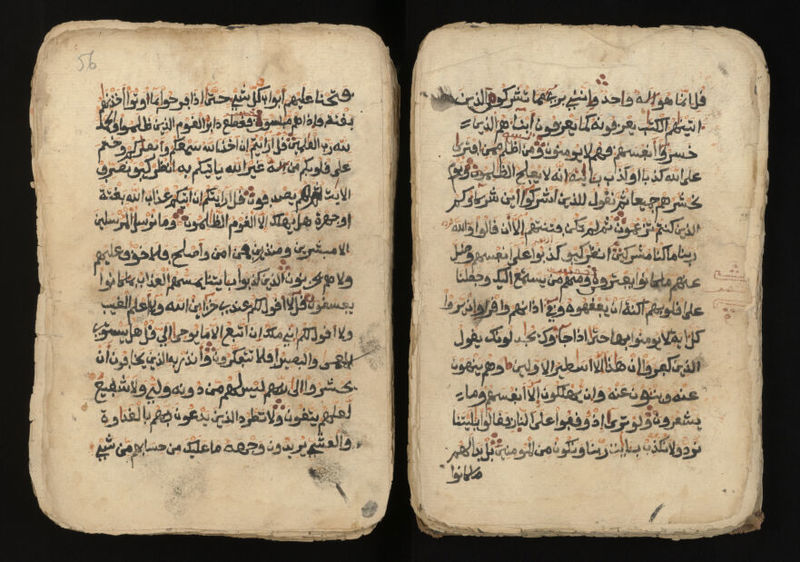 قل انما هو اله واحد وانني بري مما تشركون الذين
اتينهم الكتب يعرفونه كما يعرفون ابناهم الذين
خسروا انفسهم فهم لا يومنون ومن اظلم ممن افترى
على الله كذبا او كذب بايته انه لا يفلح الظلمون ويوم
نحشرهم جميعا ثم نقول للذين اشركوا اين شركاوكم
الذين كنتم تزعمون ثم لم تكن فتنتهم الا ان قالوا والله
ربنا ما كنا مشركين انظر كيف كذبوا على انفسهم وضل
عنهم ما كانوا يفترون ومنهم من يستمع اليك وجعلنا
على قلوبهم اكنة ان يفقهوه وفي اذانهم وقرا وان يروا
كل اية لا يومنوا بها حتى اذا جاوك يجدلونك يقول
الذين كفروا ان هذا الا اسطير الاولين وهم ينهون
عنه وينون عنه وان يهلكون الا انفسهم وما
يشعرون ولو ترى اذ وقفوا على النار فقالوا يليتنا
نرد ولا نكذب بايت ربنا ونكون من المومنين بل بدا لهم
ما كانوا
56
فتحنا عليهم ابواب كل شي حتى اذا فرحوا بما اوتوا اخذنهم
بغتة فاذا هم مبلسون فقطع دابر القوم الذين ظلموا والحمد
لله رب العلمين قل ارايتم ان اخذ الله سمعكم وابصركم وختم
على قلوبكم من اله غير الله ياتيكم به انظر كيف نصرف
الايت ثم هم يصدفون قل ارايتكم ان اتيكم عذاب الله بغتة
او جهرة هل يهلك الا القوم الظلمون وما نرسل المرسلين
الا مبشرين ومنذرين فمن امن واصلح فلا خوف عليهم
ولا هم يحزنون والذين كذبوا بايتنا يمسهم العذاب بما كانوا
يفسقون قل لا اقول لكم عندي خزاين الله ولا اعلم الغيب
ولا اقول لكم اني ملك ان اتبع الا ما يوحى الي قل هل يستوي
الاعمى والبصير افلا تتفكرون وانذر به الذين يخافون ان
يحشروا الى ربهم ليس لهم من دونه ولي ولا شفيع
لعلهم يتقون ولا تطرد الذين يدعون ربهم بالغداوة
والعشي يريدون وجهه ما عليك من حسابهم من شي